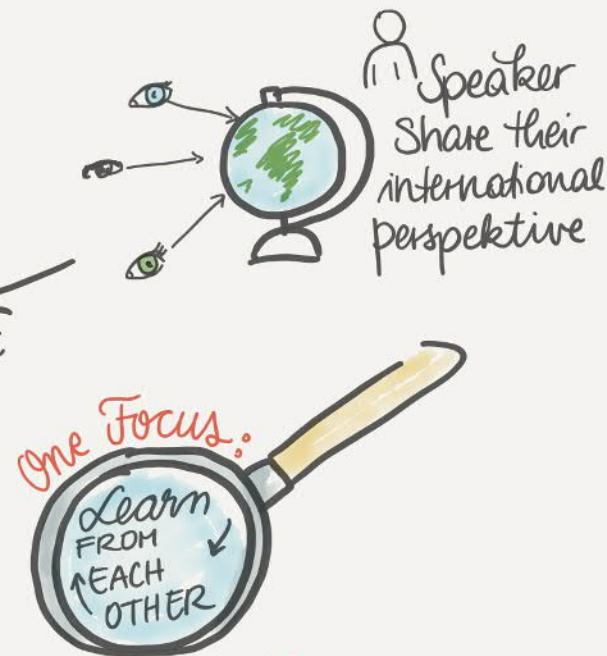 Speaker
Share their
international
perspektive
One Focus:
Learn
FROM
EACH
OTHER